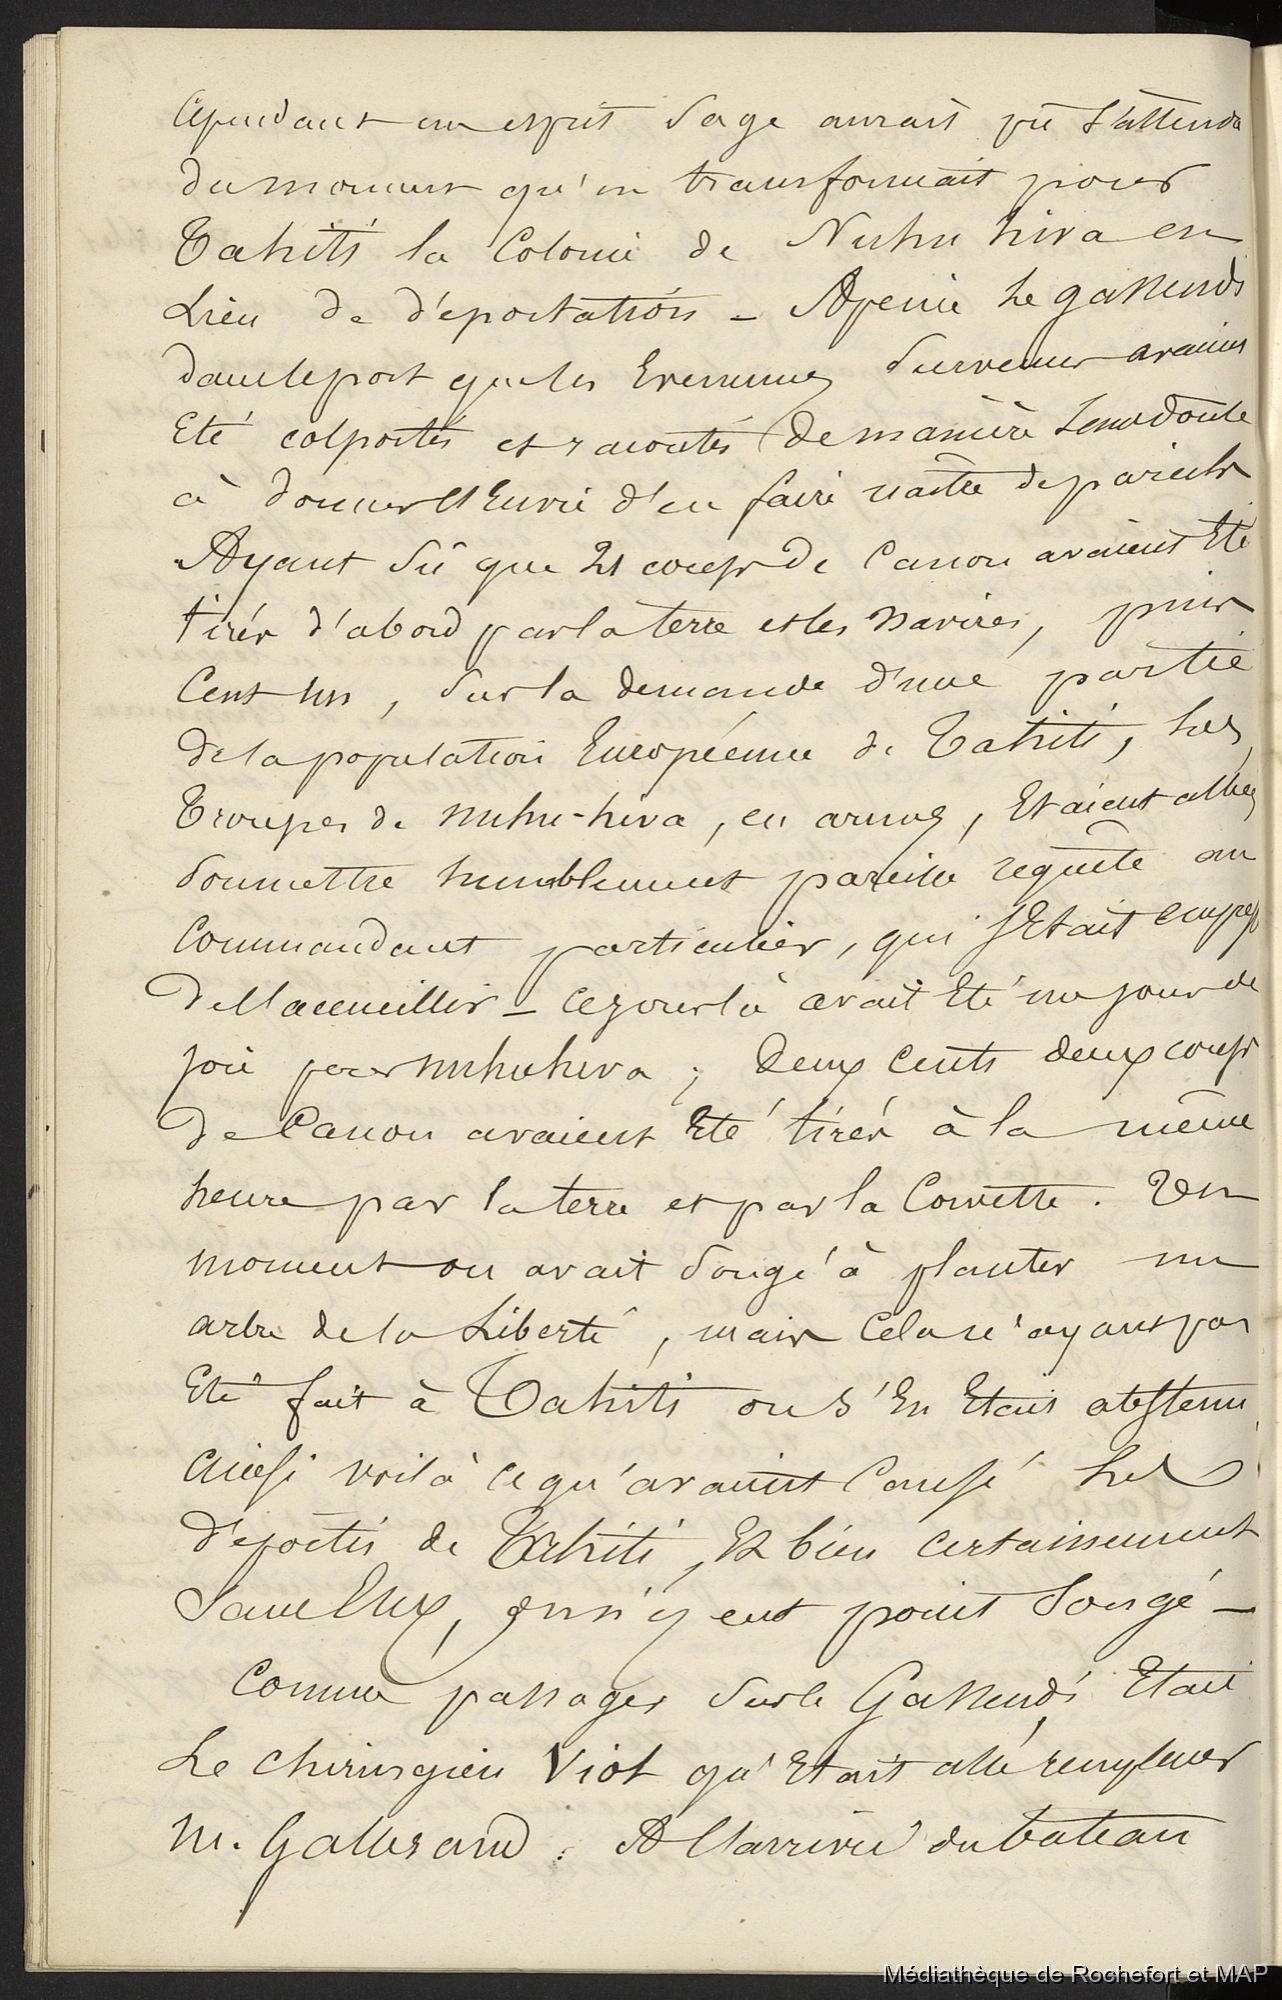 Cependant un esprit sage aurait pû s'attendr
du moment qu'on transformait pour
Tahiti la Colonie de Nuhu hiva en
Lieu de déportation _ Apeine le gassendi
dans le port que les Evenements survenus avaient
Eté colportés et racontés de manière sans doute
à donner l'Envie d'en faire naître de pareils
Ayant sû que 21 coups de Canon avaient Eté
tirés d'abord par la terre et les navires, puis
Cent un, sur la demande d'une partie
de la population Européenne de Tahiti, les
Troupes de nuhu-hiva, en armes, Etaient allées
soumettre humblement pareille requête au
Commandant particulier, qui s'Etait empressé
de l'accueillir _ ce jour là avait Eté un jour de
joie pour nuhuhiva ; Deux cents deux coups
de Canon avaient Eté tirés à la même
heure par la terre et par la Corvette. Un
moment on avait songé à planter un
arbre de la Liberté, mais cela n'ayant pas
Eté fait à Tahiti on s'En Etait abstenu
ainsi voilà ce qu'avaient Causé les
déportés de Tahiti, Et bien certainement
sans Eux, on n'y eut point songé _
Comme passager sur le Gassendi Etait
Le chirurgien Viot qu'Etait allé remplacer
M. Gallerand. A l'arrivée du bateau
Médiathèque de Rochefort et MAP